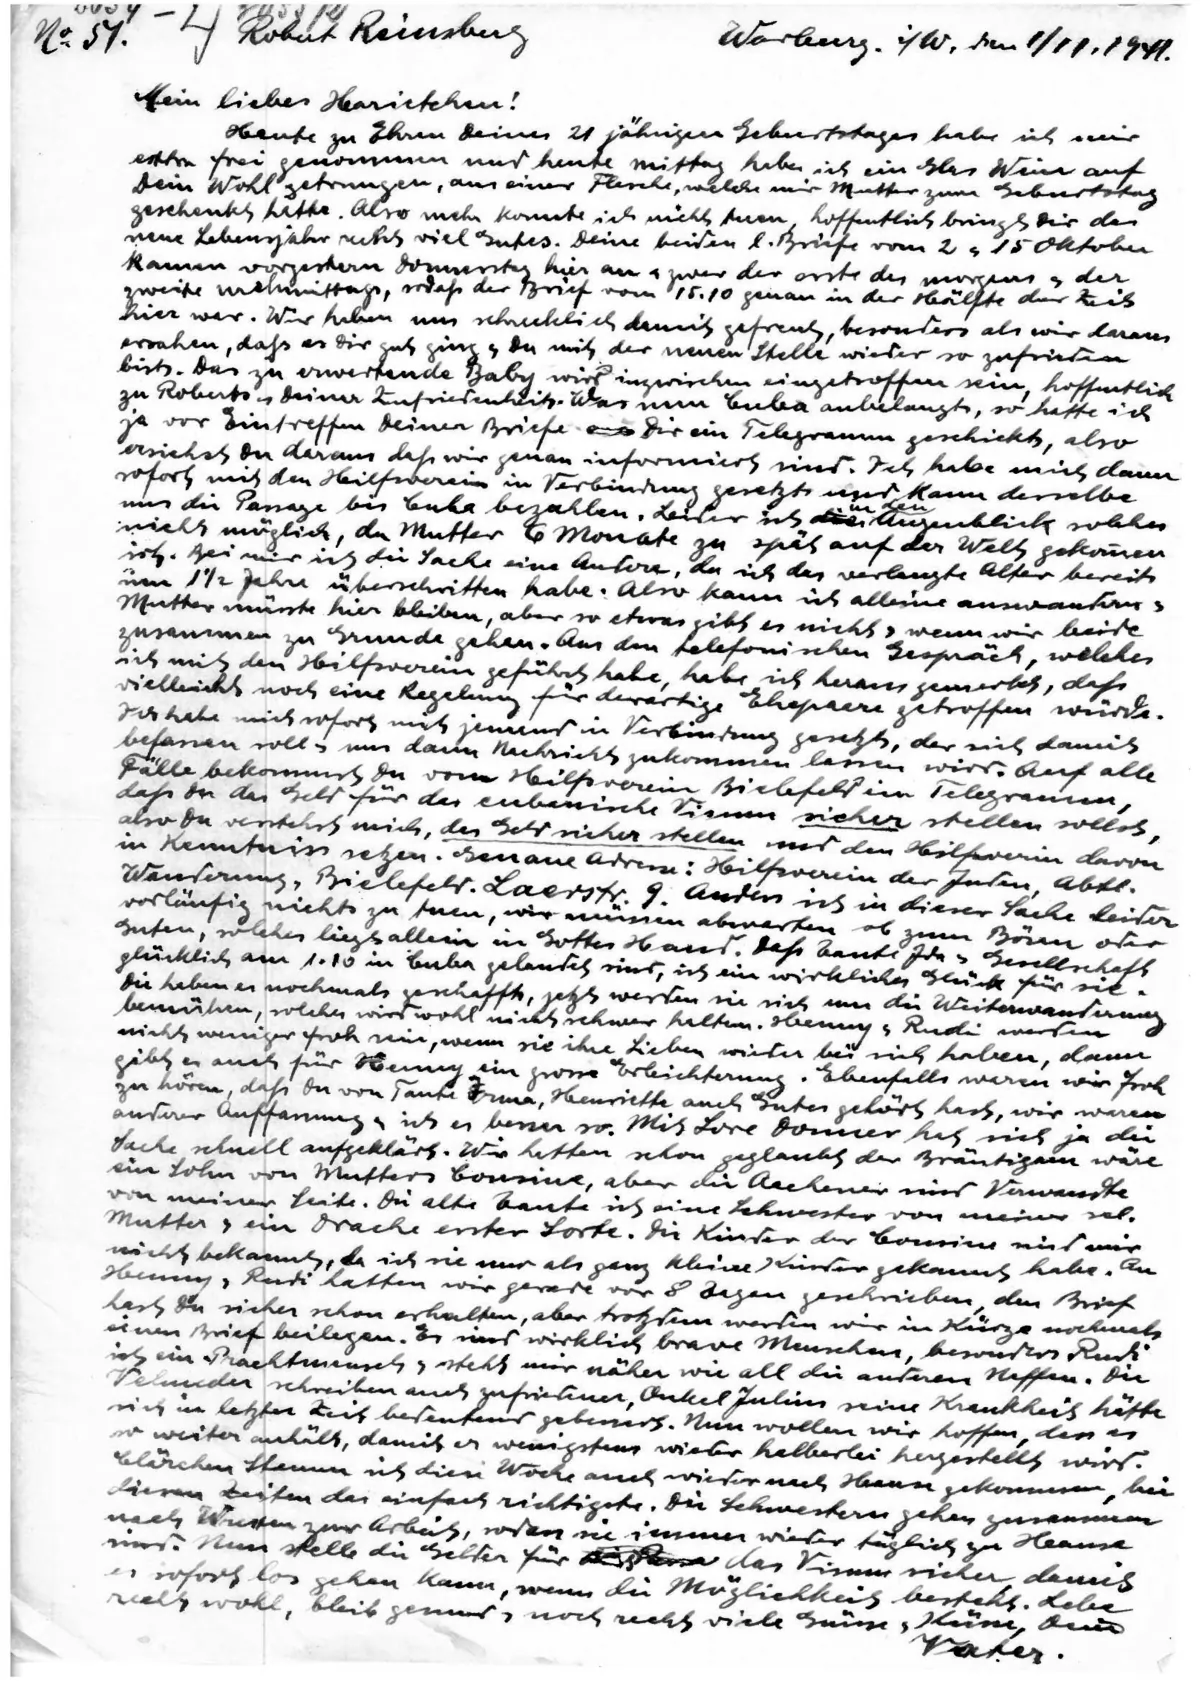 No. 51. Robert Reinsberg Warburg. i/W, den 1/11.1941.
Mein liebes Harietchen!
Heute zu Ehren Deines 21 jährigen Geburtstages habe ich mir
extra frei genommen und heute mittag habe ich ein Glas Wein auf
Dein Wohl getrungen, aus einer Flasche, welche mir Mutter zum Geburtstag
geschenkt hatte. Also mehr konnte ich nicht tuen, hoffentlich bringt Dir das
neue Lebensjahr recht viel Gutes. Deine beiden l. Briefe vom 2 u 15 Oktober
kamen vorgestern Donnerstag hier an u zwar der erste des morgens u der
zweite nachmittags, sodaß der Brief vom 15.10 genau in der Hälfte der Zeit
hier war. Wir haben uns schrecklich damit gefreut, besonders als wir daraus
ersahen, daß es Dir gut ging u Du mit der neuen Stelle wieder so zufrieden
bist. Das zu erwartende Baby wird inzwischen eingetroffen sein, hoffentlich
zu Roberts u Deiner Zufriedenheit. Was nun Cuba anbelangt, so hatte ich
ja vor Eintreffen Deiner Briefe Dir ein Telegramm geschickt, also
ersiehst Du daraus daß wir genau informiert sind. Ich habe mich dann
sofort mit den Hilfsverein in Verbindung gesetzt und kann derselbe
uns die Passage bis Cuba bezahlen. Leider ist im den Augenblick solches
nicht möglich, da Mutter 6 Monate zu spät auf der Welt gekommen
ist. Bei mir ist die Sache eine Andere, da ich das verlangte Alter bereits
um 1 1/2 Jahre überschritten habe. Also kann ich alleine auswandern u
Mutter müsste hier bleiben, aber so etwas gibt es nicht u wenn wir beide
zusammen zu Grunde gehen. Aus dem telefonischen Gespräch, welches
ich mit den Hilfsverein geführt habe, habe ich heraus gemerkt, daß
vielleicht noch eine Regelung für derartige Ehepaare getroffen würde.
Ich habe mich sofort mit jemand in Verbindung gesetzt, der sich damit
befassen soll u uns dann Nachricht zukommen lassen wird. Auf alle
Fälle bekommst Du vom Hilfsverein Bielefeld ein Telegramm,
daß Du das Geld für das cubanische Visum sicher stellen sollst,
also Du verstehst mich, das Geld sicher stellen und den Hilfsverein davon
in Kenntniss setzen. Genaue Adresse: Hilfsverein der Juden, Abtl.
Wanderung, Bielefeld. Laerstr. 9. Anders ist in dieser Sache leider
vorläufig nichts zu tuen, wir müssen abwarten ob zum Bösen oder
Guten, solches liegt allein in Gottes Hand. Daß Tante Ida u Gesellschaft
glücklich am 1.10 in Cuba gelandet sind, ist ein wirkliches Glück für sie.
Die haben es nochmals geschafft, jetzt werden sie sich um die Weiterwanderung
bemühen, solches wird wohl nicht schwer halten. Henny u Rudi werden
nicht weniger froh sein, wenn sie ihre Lieben wieder bei sich haben, dann
gibt es auch für Henny ein grosse Erleichterung. Ebenfalls waren wir froh
zu hören, daß Du von Tante Erma, Henriette auch Gutes gehört hast, wir waren
anderer Auffassung u ist es besser so. Mit Lore Donner hat sich ja die
Sache schnell aufgeklärt. Wir hatten schon geglaubt der Bräutigam wäre
ein Sohn von Mutters Cousine, aber die Aachener sind Verwandte
von meiner Seite. Die alte Tante ist eine Schwester von meiner sel.
Mutter u ein Drache erster Sorte. Die Kinder der Cousine sind mir
nicht bekannt, da ich sie nur als ganz kleine Kinder gekannt habe. An
Henny u Rudi hatten wir gerade vor 8 Tagen geschrieben, den Brief
hast Du sicher schon erhalten, aber trotzdem werden wir in Kürze nochmals
einen Brief beilegen. Es sind wirklich brave Menschen, besonders Rudi
ist ein Prachtmensch u steht mir näher wie all die anderen Neffen. Die
Velmeder schreiben auch zufriedener, Onkel Julius seine Krankheit hätte
sich in letzter Zeit bedeutend gebessert. Nun wollen wir hoffen, dass es
so weiter anhält, damit er wenigstens wieder halberlei hergestellt wird.
Clärchen Stamm ist diese Woche auch wieder nach Hause gekommen, bei
diesen Zeiten das einfach richtigste. Die Schwestern gehen zusammen
nach zur Arbeit, sodass sie immer wieder täglich zu Hause
sind. Nun stelle die Gelder für das Visum sicher, damit
es sofort los gehen kann, wenn die Möglichkeit besteht. Lebe
recht wohl, bleib gesund u noch recht viele Grüsse u Küsse, Dein
Vater.